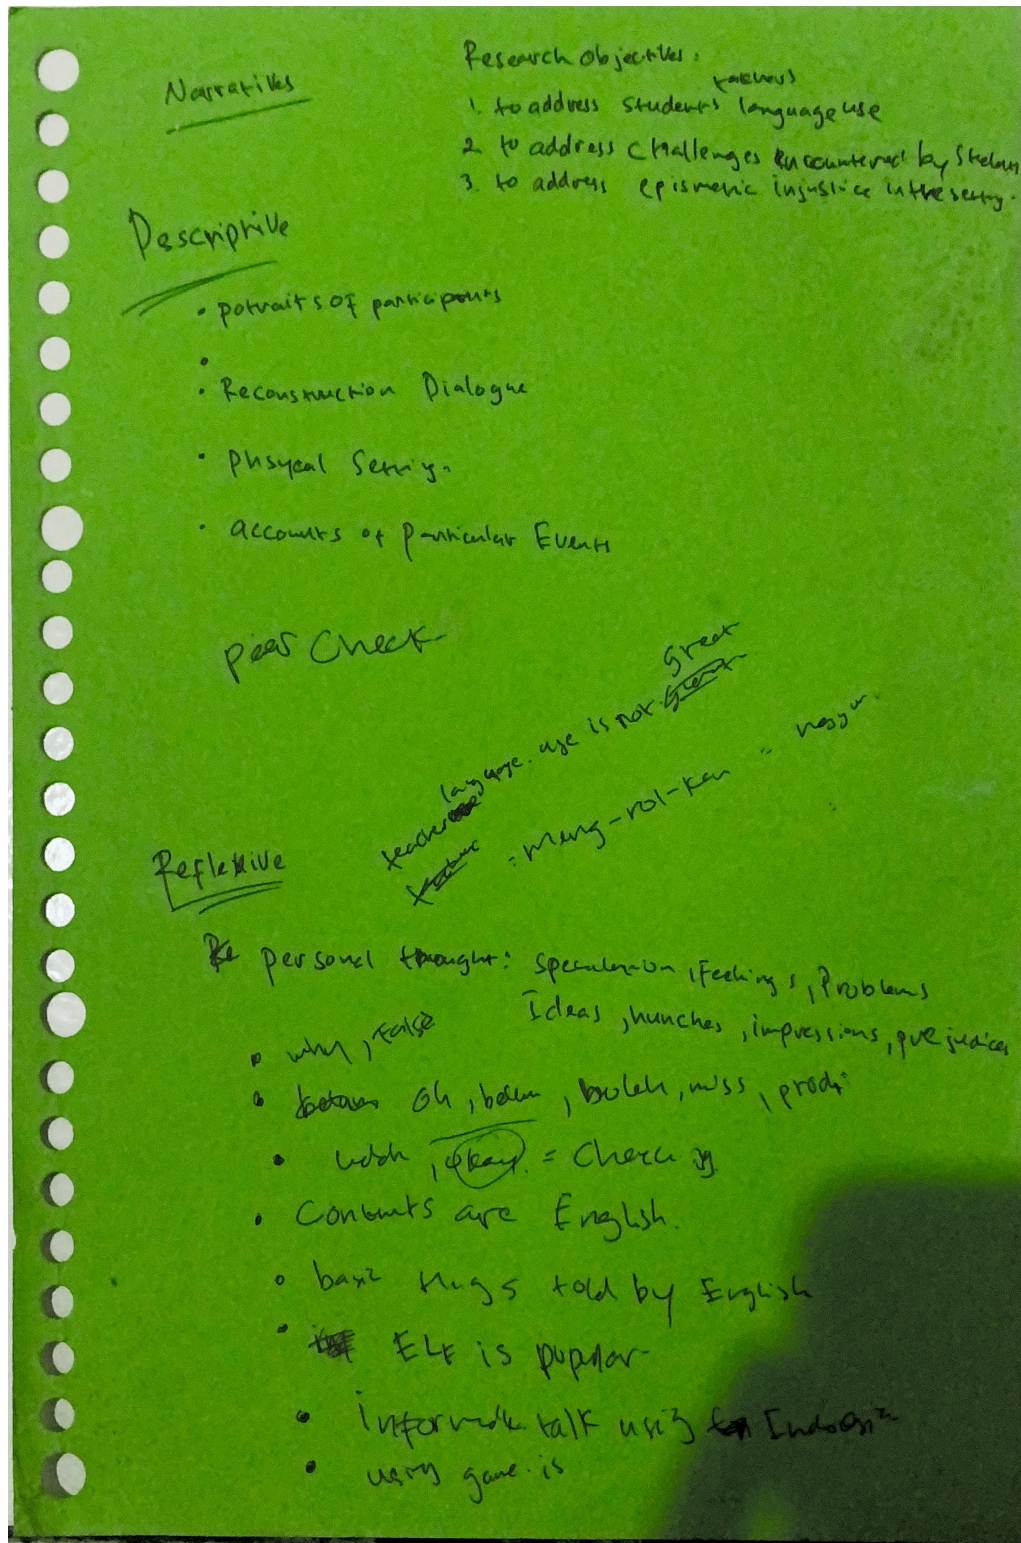 Narratives
Research objectives:
teachers
1. to address students language use
2 to address challenges encountered by students
3. to address epismetic injustice in the setting.
Descriptive
• potraits of participants
•
• Reconstruction Dialogue
• Phsycal Setting.
• accounts of particular Events
peer Check
street
language use is not
teacher
= meng-rol-kan =
Reflexive
personal thought: speculation, Feelings, Problems
Ideas, hunches, impressions, prejudices
• why, False
• oh, belum, boleh, miss, prodi
• udah, okay = Check
• Contents are English.
• basic things told by English
• ELF is popular
• talk using
• using game is